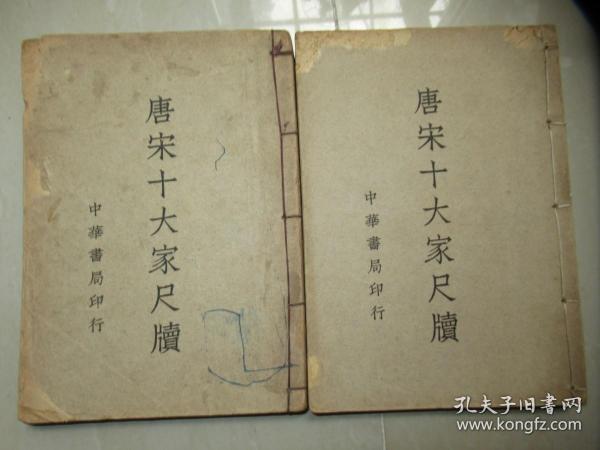 唐宋十大家尺牘
中華書局印行
唐宋十大家尺牘
中華書局印行
孔夫子旧書网
www.kongfz.com